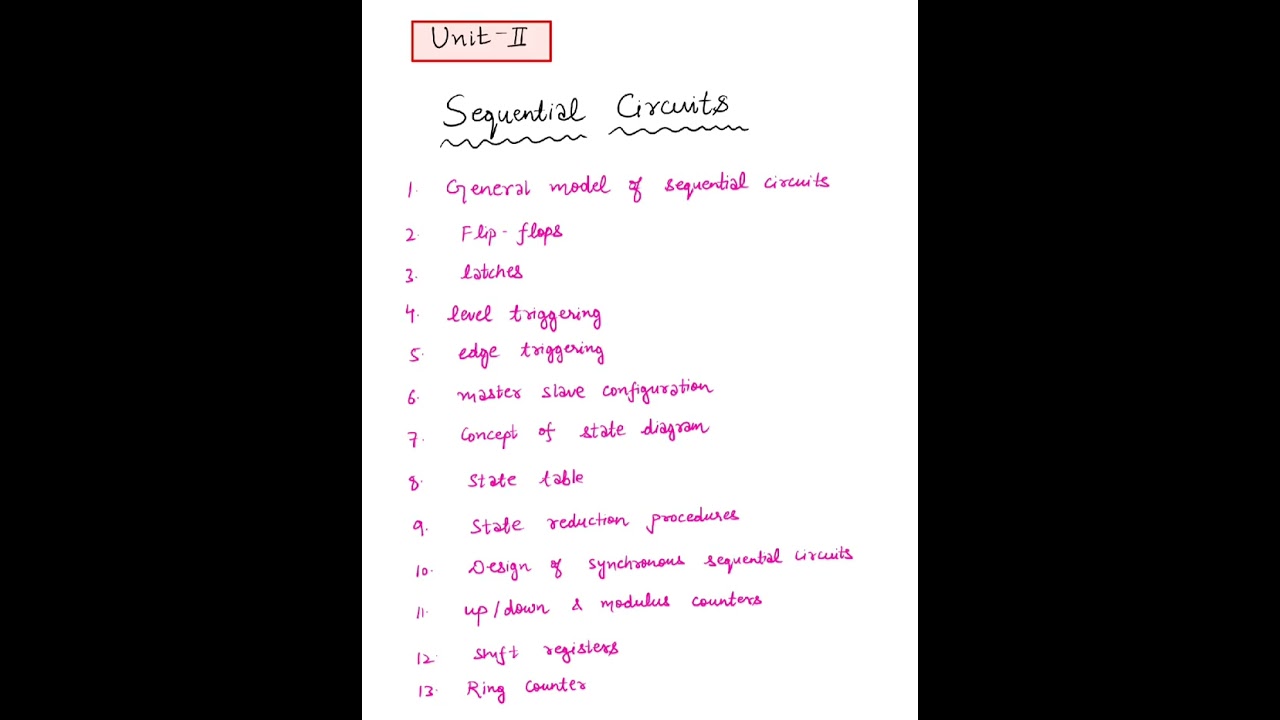 Unit-II
Sequential Circuits
1. General model of sequential circuits
2. Flip-flops
3. latches
4. level triggering
5. edge triggering
6. master slave configuration
7. Concept of state diagram
8. State table
9. State reduction procedures
10. Design of synchronous sequential circuits
11. up/down & modulus counters
12. shift registers
13. Ring counter